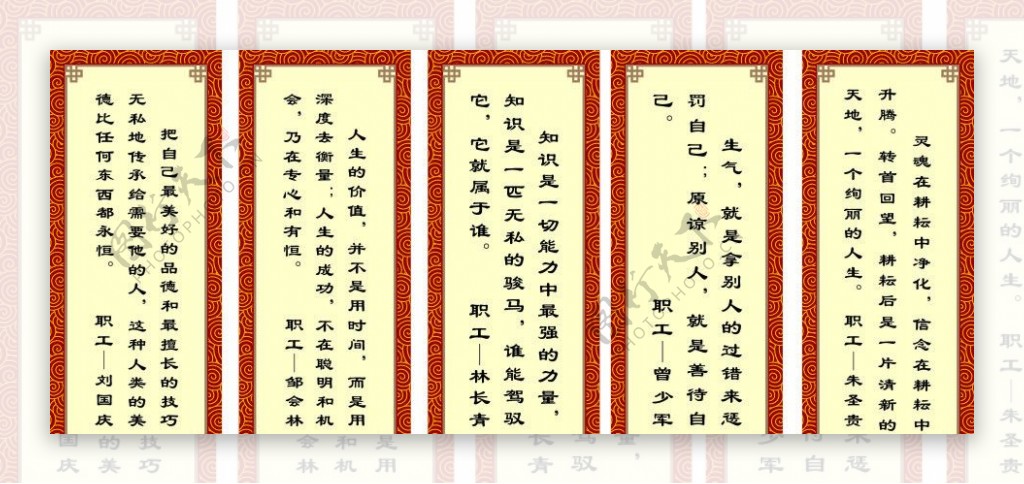 把自己最美好的品德和最擅长的技巧
无私地传承给需要他的人，这种人类的美
德比任何东西都永恒。 职工—刘国庆
人生的价值，并不是用时间，而是用
深度去衡量；人生的成功，不在聪明和机
会，乃在专心和有恒。 职工—邹会林
知识是一切能力中最强的力量，
知识是一匹无私的骏马，谁能驾驭
它，它就属于谁。 职工—林长青
生气，就是拿别人的过错来惩
罚自己；原谅别人，就是善待自
己。 职工—曾少军
灵魂在耕耘中净化，信念在耕耘中
升腾。转首回望，耕耘后是一片清新的
天地，一个绚丽的人生。 职工—朱圣贵